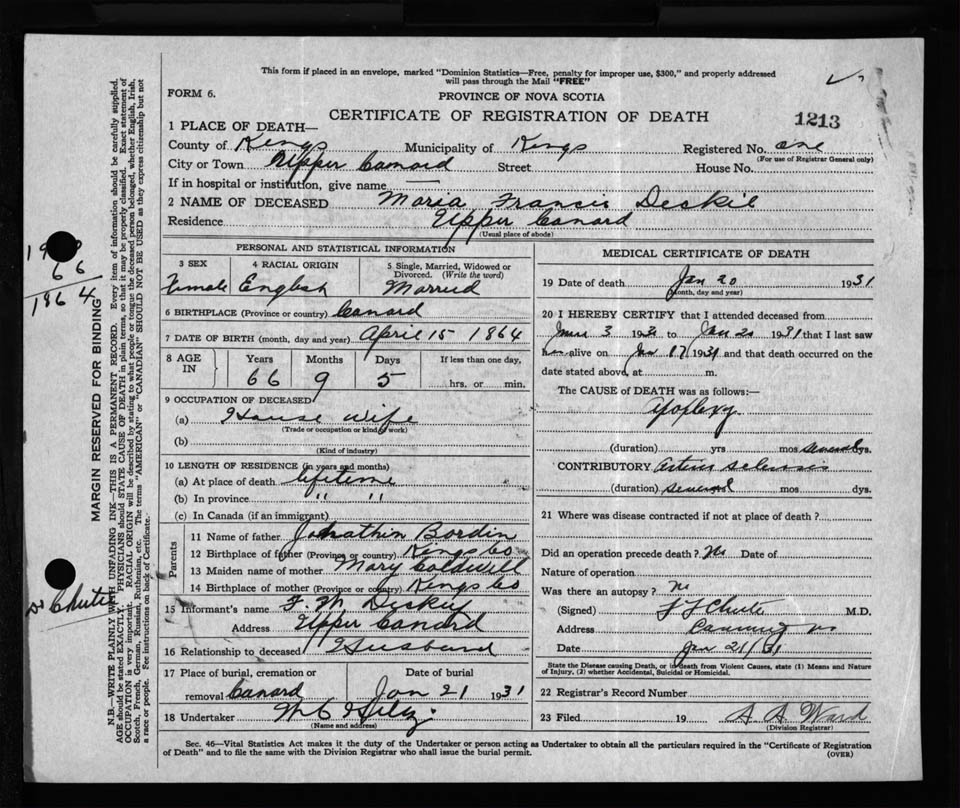 This form if placed in an envelope, marked "Dominion Statistics—Free, penalty for improper use, $300," and properly addressed
will pass through the Mail "FREE"
FORM 6.
PROVINCE OF NOVA SCOTIA
CERTIFICATE OF REGISTRATION OF DEATH
1213
1 PLACE OF DEATH—
County of Kings Municipality of Kings Registered No. one
(For use of Registrar General only)
City or Town Upper Canard Street House No.
If in hospital or institution, give name —
2 NAME OF DECEASED Maria Francis Deskil
Residence Upper Canard
(Usual place of abode)
PERSONAL AND STATISTICAL INFORMATION
3 SEX 4 RACIAL ORIGIN 5 Single, Married, Widowed or
Divorced. (Write the word)
Female English Married
6 BIRTHPLACE (Province or country) Canard
7 DATE OF BIRTH (month, day and year) April 15 1864
8 AGE IN Years Months Days If less than one day,
66 9 5 hrs. or min.
9 OCCUPATION OF DECEASED
(a) House wife
(Trade or occupation or kind of work)
(b)
(Kind of industry)
10 LENGTH OF RESIDENCE (in years and months)
(a) At place of death lifetime
(b) In province " "
(c) In Canada (if an immigrant)
Parents
11 Name of father Johnathin Bordin
12 Birthplace of father (Province or country) Kings Co
13 Maiden name of mother Mary Coldwell
14 Birthplace of mother (Province or country) Kings Co
15 Informant's name F. W. Deskil
Address Upper Canard
16 Relationship to deceased Husband
17 Place of burial, cremation or Date of burial
removal Canard Jan 21 1931
18 Undertaker
(Name and address)
MEDICAL CERTIFICATE OF DEATH
19 Date of death Jan 20 1931
(Month, day and year)
20 I HEREBY CERTIFY that I attended deceased from
3 1931 to Jan 20 1931 that I last saw
her alive on Jan 17 1931 and that death occurred on the
date stated above, at m.
The CAUSE of DEATH was as follows:—
Apoplexy
(duration) yrs mos several dys.
CONTRIBUTORY arterio sclerosis
(duration) several mos dys.
21 Where was disease contracted if not at place of death?
Did an operation precede death? No Date of
Nature of operation
Was there an autopsy? No
(Signed) Chute M.D.
Address Canning NS
Date Jan 21/31
State the Disease causing Death, or in death from Violent Causes, state (1) Means and Nature
of Injury, (2) whether Accidental, Suicidal or Homicidal.
22 Registrar's Record Number
23 Filed 19 A. A. Ward
(Division Registrar)
Sec. 46—Vital Statistics Act makes it the duty of the Undertaker or person acting as Undertaker to obtain all the particulars required in the "Certificate of Registration
of Death" and to file the same with the Division Registrar who shall issue the burial permit.
(OVER)
MARGIN RESERVED FOR BINDING
N.B.—WRITE PLAINLY WITH UNFADING INK—THIS IS A PERMANENT RECORD. Every item of information should be carefully supplied.
AGE should be stated EXACTLY. PHYSICIANS should STATE CAUSE OF DEATH in plain terms, so that it may be properly classified. Exact statement of
OCCUPATION is very important. RACIAL ORIGIN will be described by stating to what people or tongue the deceased person belonged, whether English, Irish,
Scotch, French, German, Russian, Ruthenian, etc. The terms "AMERICAN" or "CANADIAN" SHOULD NOT BE USED as they express citizenship but not
a race or people. See instructions on back of Certificate.
66
1864
Dr Chute